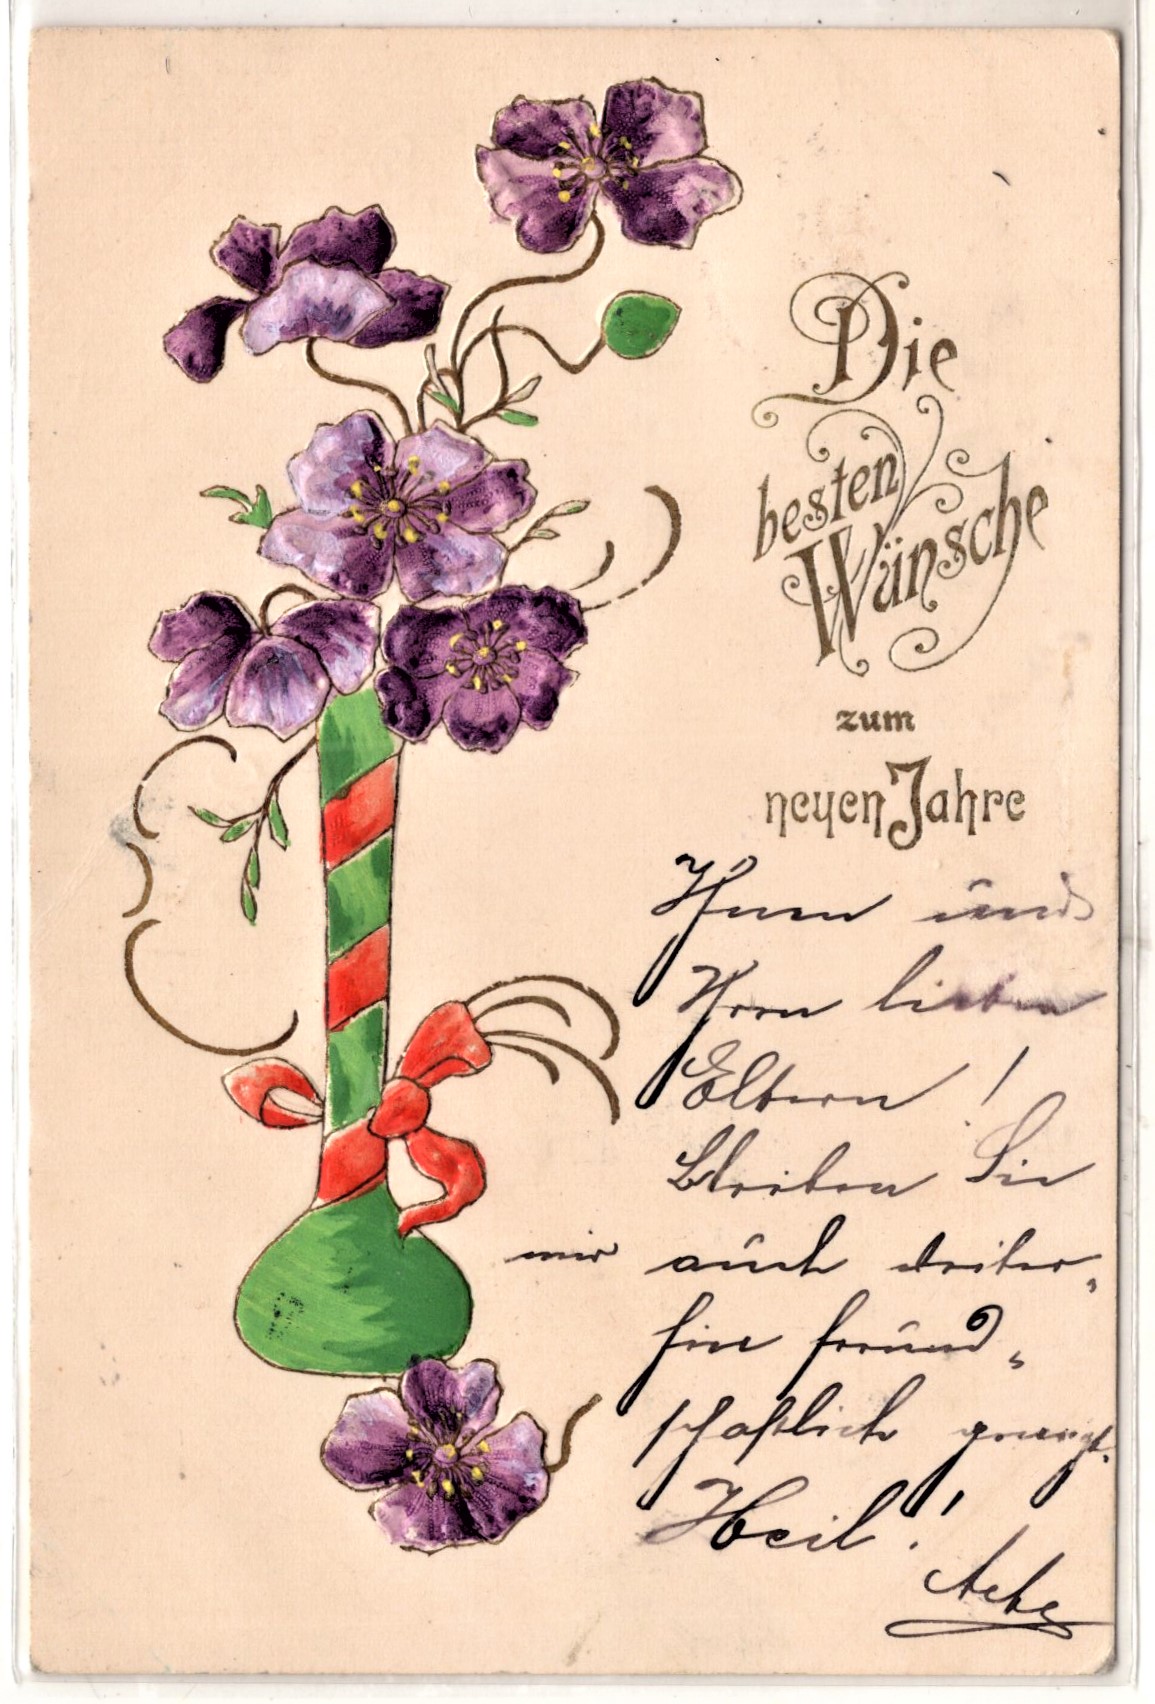 Die
besten
Wünsche
zum
neuen Jahre
Ihnen und
Ihren lieben
Eltern!
Bleiben Sie
mir auch weiter-
hin freund-
schaftlich geneigt.
Heil!